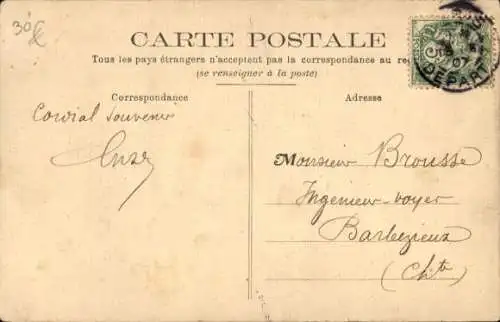 30 €
CARTE POSTALE
Tous les pays étrangers n'acceptent pas la correspondance au
(se renseigner à la poste)
Correspondance
Cordial Souvenir
Adresse
Monsieur Brousse
Ingenieur-voyer
Barbezieux
(Chte)
07
DEPART